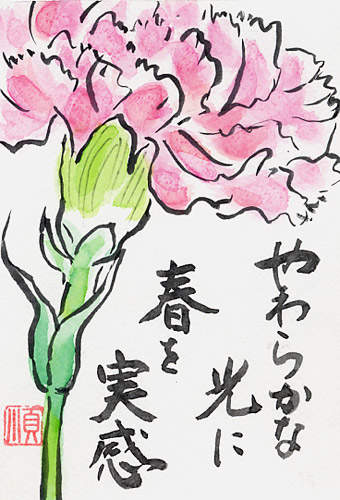 やわらかな
光に
春を
実感
順